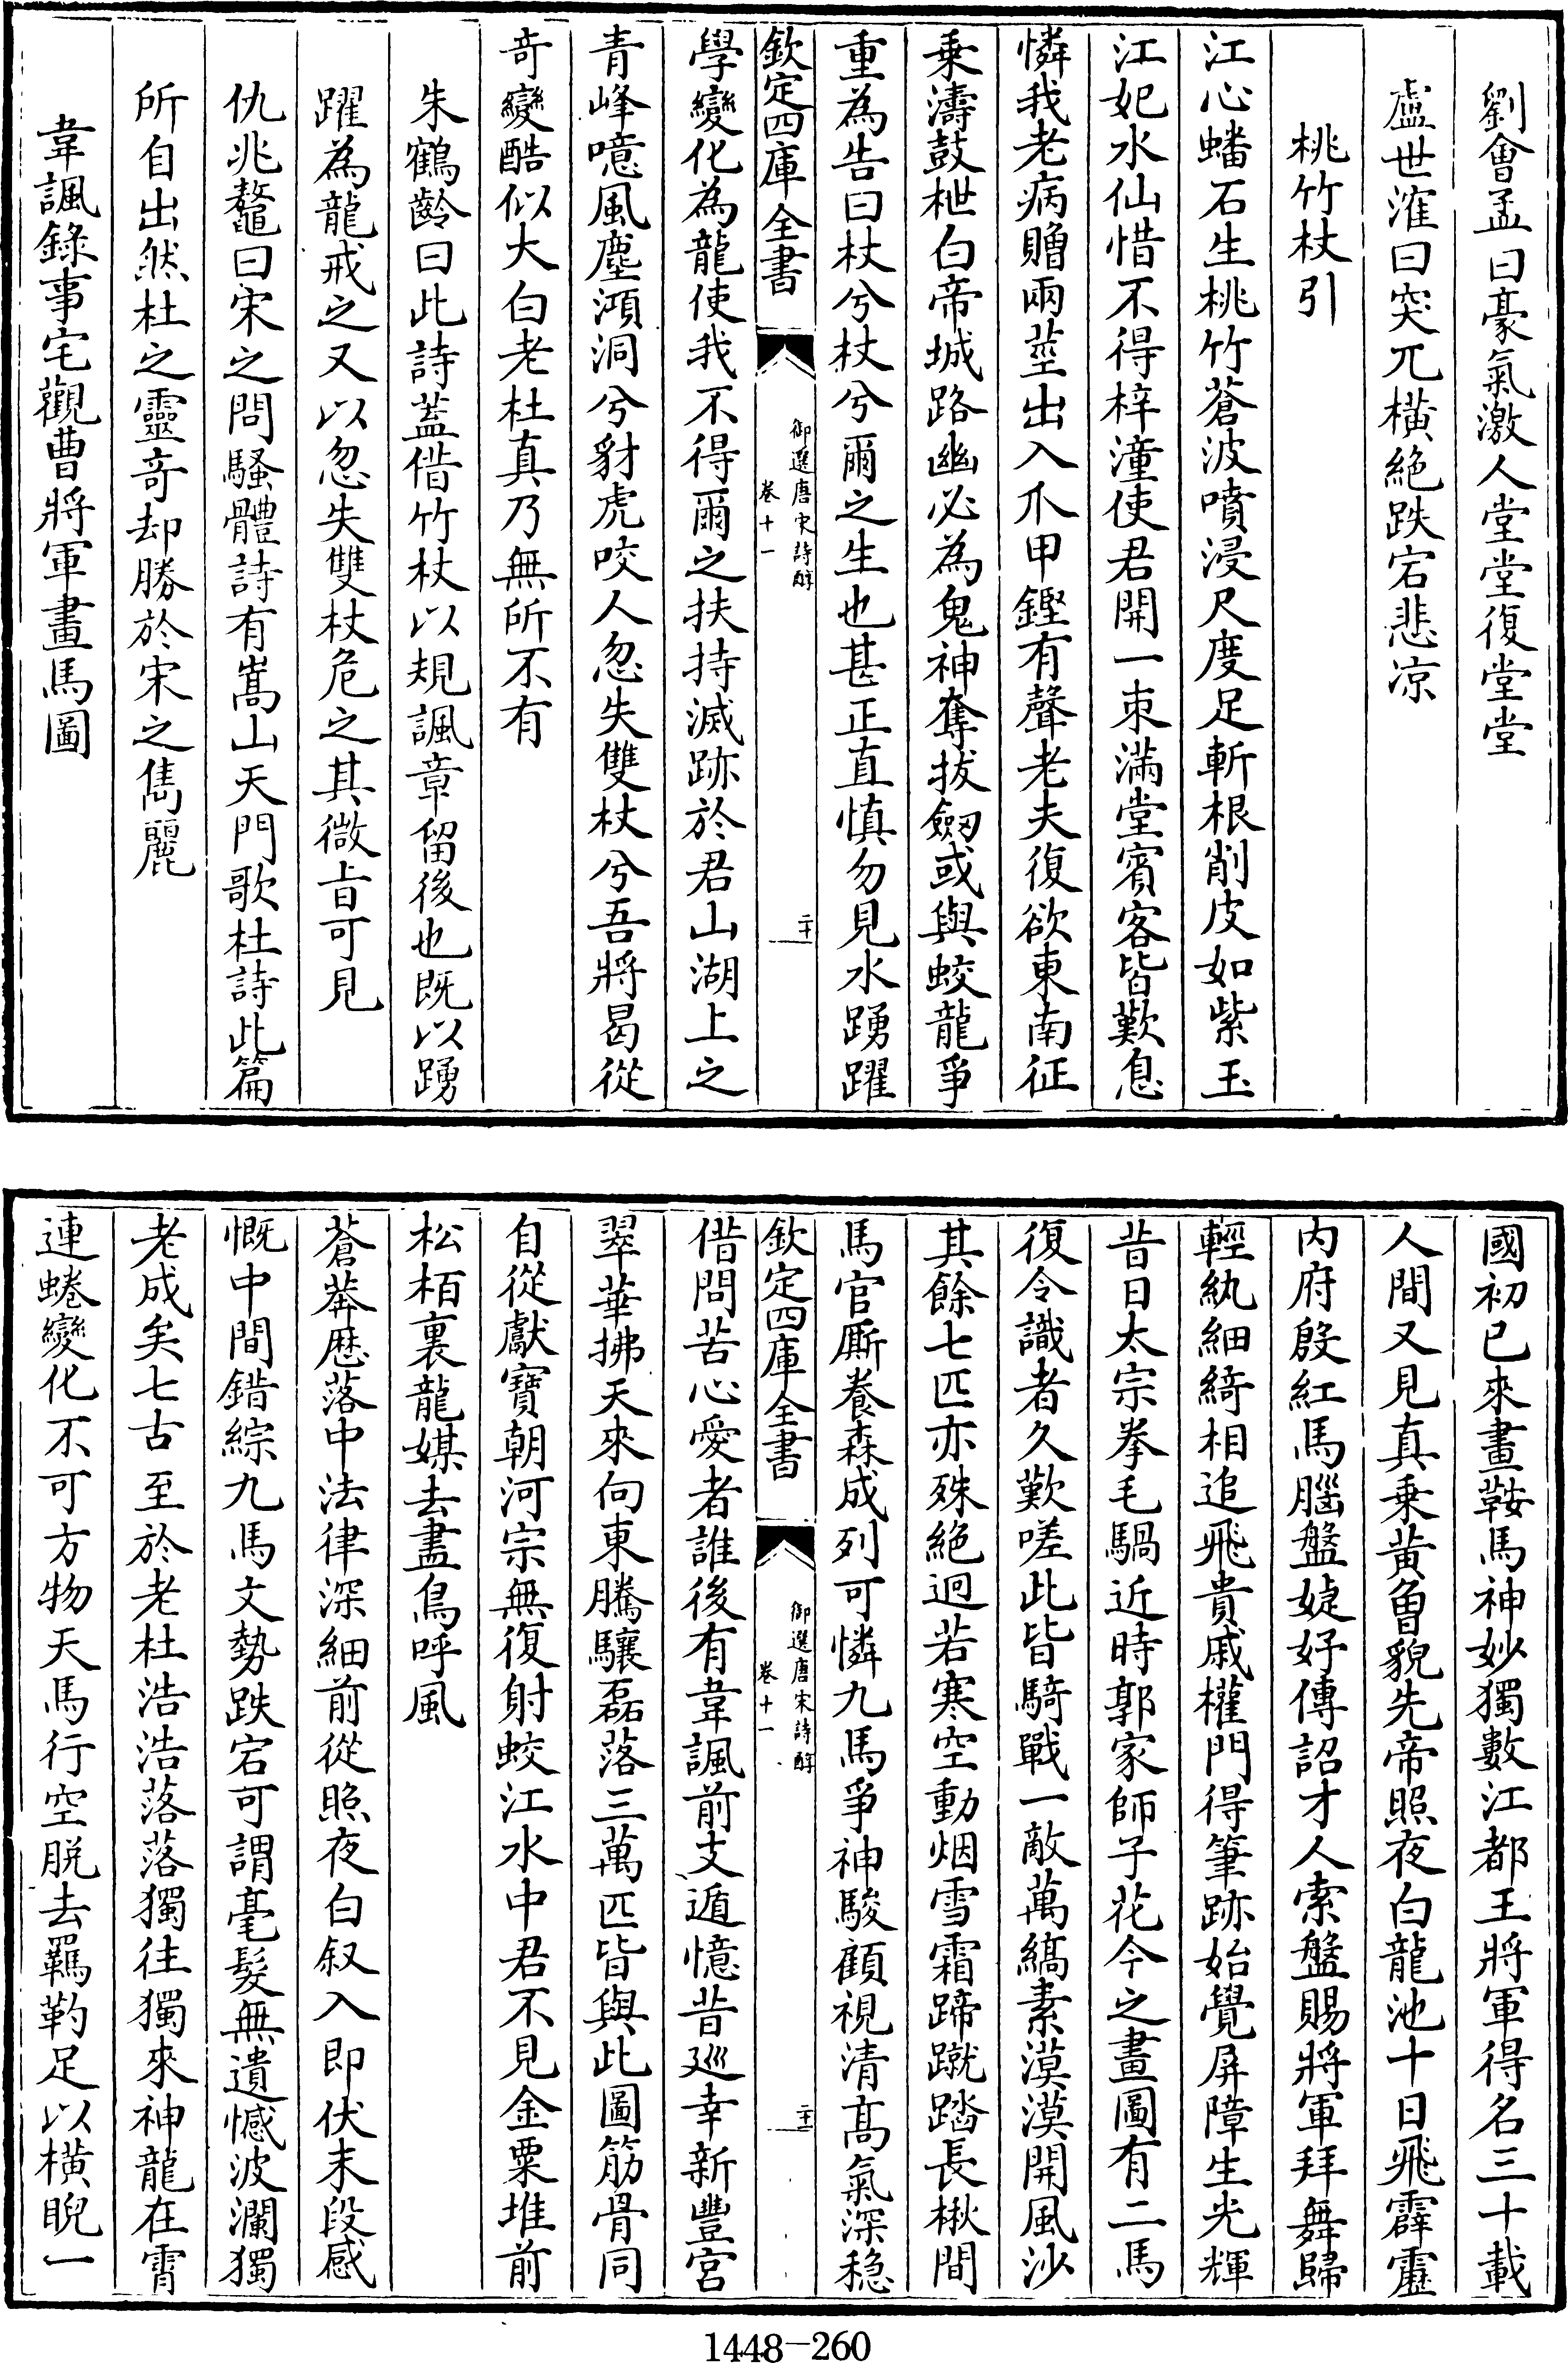 劉會孟曰豪氣激人堂堂復堂堂
盧世㴶曰突兀橫絶跌宕悲凉
桃竹杖引
江心蟠石生桃竹蒼波噴浸尺度足斬根削皮如紫玉
江妃水仙惜不得梓潼使君開一束滿堂賓客皆歎息
憐我老病贈兩莖出入爪甲鏗有聲老夫復欲東南征
乗濤鼓枻白帝城路幽必為鬼神奪拔劒或與蛟龍爭
重為告曰杖兮杖兮爾之生也甚正直慎勿見水踴躍
欽定四庫全書
御選唐宋詩醇
卷十一
二十
學變化為龍使我不得爾之扶持滅跡於君山湖上之
青峰噫風塵澒洞兮豺虎咬人忽失雙杖兮吾將曷從
竒變酷似太白老杜真乃無所不有
朱鶴齡曰此詩蓋借竹杖以規諷章留後也既以踴
躍為龍戒之又以忽失雙杖危之其微㫖可見
仇兆鰲曰宋之問騷體詩有嵩山天門歌杜詩此篇
所自出然杜之靈竒却勝於宋之雋麗
韋諷錄事宅觀曹將軍畫馬圖
國初已來畫鞍馬神妙獨數江都王將軍得名三十載
人間又見真乗黃曾貌先帝照夜白龍池十日飛霹靂
内府殷紅馬腦盤婕妤傳詔才人索盤賜將軍拜舞歸
輕紈細綺相追飛貴戚權門得筆跡始覺屏障生光輝
昔日太宗拳毛騧近時郭家師子花今之畫圖有二馬
復令識者久歎嗟此皆騎戰一敵萬縞素漠漠開風沙
其餘七匹亦殊絶迥若寒空動烟雪霜蹄蹴踏長楸間
馬官廝養森成列可憐九馬爭神駿顧視清髙氣深稳
欽定四庫全書
御選唐宋詩醇
卷十一
二十一
借問苦心愛者誰後有韋諷前支遁憶昔廵幸新豐宮
翠華拂天來向東騰驤磊落三萬匹皆與此圖筋骨同
自從獻寶朝河宗無復射蛟江水中君不見金粟堆前
松栢裏龍媒去盡鳥呼風
蒼莽歴落中法律深細前從照夜白叙入即伏末段感
慨中間錯綜九馬文勢跌宕可謂毫髮無遺憾波瀾獨
老成矣七古至於老杜浩浩落落獨往獨來神龍在霄
連蜷變化不可方物天馬行空脱去羈靮足以橫睨一
1448—260